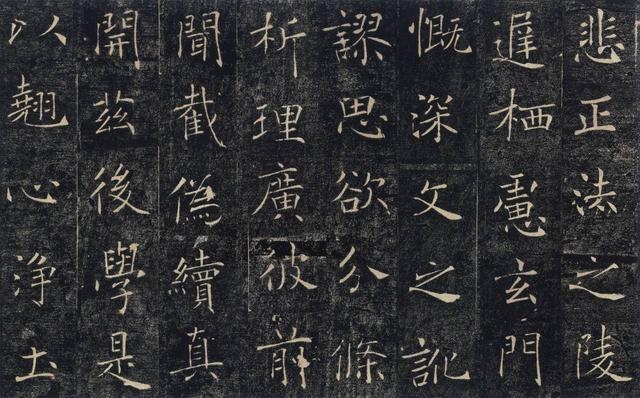 悲正法之陵
遲栖慮玄門
慨深文之訛
謬思欲分條
析理廣彼前
聞截偽續真
開茲後學是
以翹心淨土